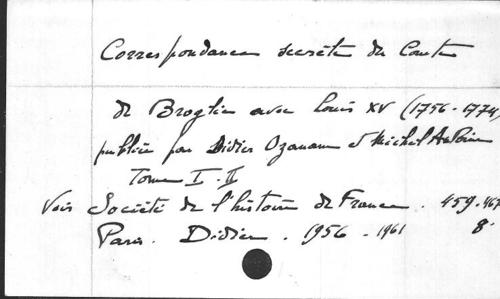 Correspondance secrète du Comte
de Broglie avec Louis XV (1756-1774)
publiée par Didier Ozanam et Michel Antoine
Tome I-II
Voir Société de l'histoire de France. 459.467
Paris. Didier. 1956-1961 8°